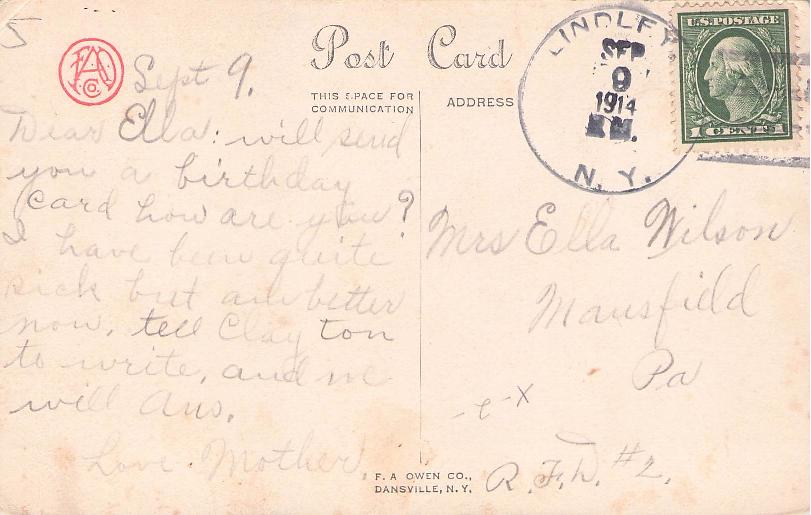 5
FAO Co.
Post Card
THIS SPACE FOR
COMMUNICATION
ADDRESS
LINDLEY
SEP
9
1914
N. Y.
U.S. POSTAGE
1 CENT 1
Sept 9.
Dear Ella: will send
you a birthday
Card how are you?
I have been quite
sick but am better
now, tell Clayton
to write, and we
will Ans.
Love Mother,
Mrs Ella Wilson
Mansfield
Pa
R.F.D. #2.
F. A OWEN CO.,
DANSVILLE, N.Y.